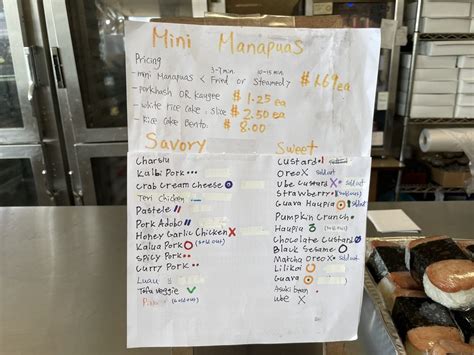 Mini Manapuas
Pricing 3-7min. 10-15min
- mini Manapuas < Fried or Steamed > $1.69 ea
- porkhash OR $1.25 ea
- white rice cake: slice $2.50 ea
- Rice Cake Bento: $8.00
Savory
Charsiu
Kalbi Pork
Crab Cream Cheese
Teri Chicken
Pastele
Pork Adobo
Honey Garlic Chicken X
Kalua Pork (sold out)
Spicy Pork
Curry Pork
Luau
Tofu Veggie
(sold out)
Sweet
Custard
Oreo X Sold out
Ube Custard X Sold out
Strawberry Sold out
Guava Haupia Sold out
Pumpkin Crunch
Haupia (sold out)
Chocolate Custard
Black Sesame
Matcha Oreo X Sold out
Lilikoi
Guava
Azuki bean
Ube X